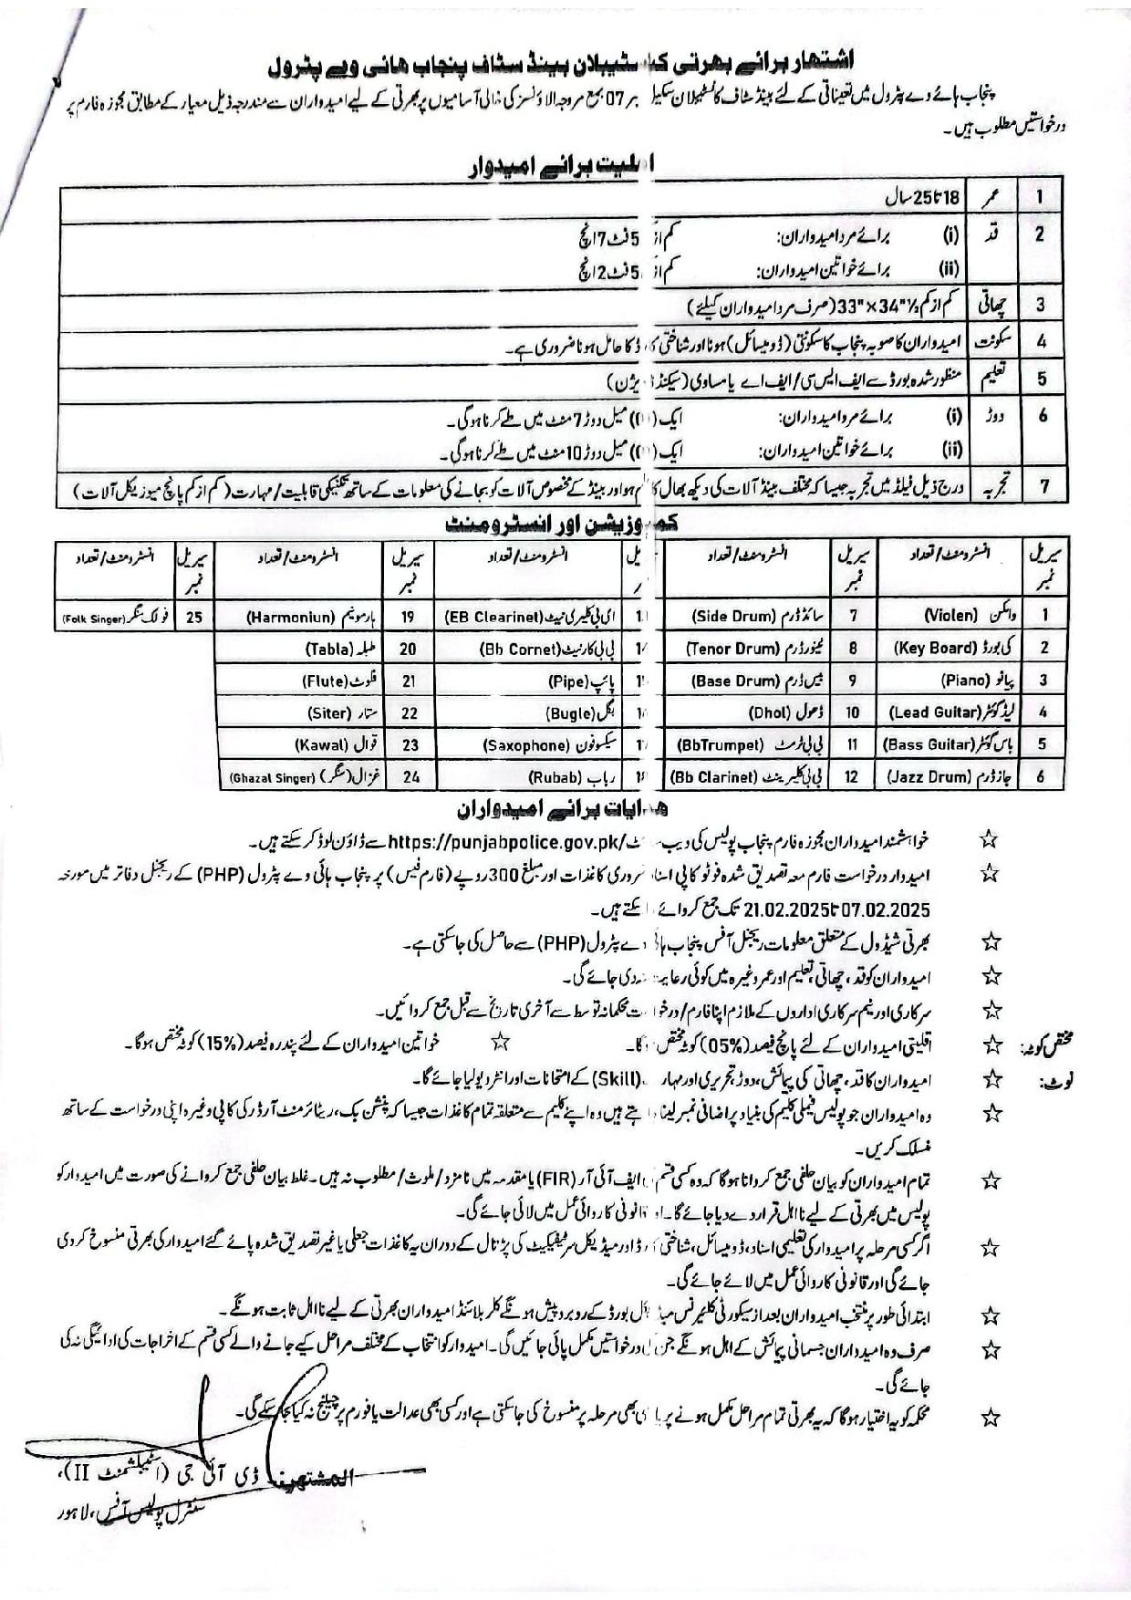 اشتہار برائے بھرتی کانسٹیبلان بینڈ سٹاف پنجاب ہائی وے پٹرول
پنجاب ہائے وے پٹرول میں تعیناتی کے لئے بینڈ سٹاف کانسٹیبلان سکیل بر 07 بمع مروجہ الاؤنسز کی خالی آسامیوں پر بھرتی کے لیے امیدواران سے مندرجہ ذیل معیار کے مطابق مجوزہ فارم پر
درخواستیں مطلوب ہیں۔
اہلیت برائے امیدوار
1 عمر 18 تا 25 سال
2 قد (i) برائے مرد امیدواران: کم از 5 فٹ 7 انچ
(ii) برائے خواتین امیدواران: کم از 5 فٹ 2 انچ
3 چھاتی کم از کم 33"×34"½ (صرف مرد امیدواران کیلئے)
4 سکونت امیدواران کا صوبہ پنجاب کا سکونتی (ڈومیسائل) ہونا اور شناختی کارڈ کا حامل ہونا ضروری ہے۔
5 تعلیم منظور شدہ بورڈ سے ایف ایس سی/ایف اے یا مساوی (سیکنڈ ڈویژن)
6 دوڑ (i) برائے مرد امیدواران: ایک (01) میل دوڑ 7 منٹ میں طے کرنا ہوگی۔
(ii) برائے خواتین امیدواران: ایک (01) میل دوڑ 10 منٹ میں طے کرنا ہوگی۔
7 تجربہ درج ذیل فیلڈ میں تجربہ جیسا کہ مختلف بینڈ آلات کی دیکھ بھال کا علم ہو اور بینڈ کے مخصوص آلات کو بجانے کی معلومات کے ساتھ تکنیکی قابلیت/مہارت (کم از کم پانچ میوزیکل آلات)
کمپوزیشن اور انسٹرومنٹ
سیریل نمبر انسٹرومنٹ/تعداد سیریل نمبر انسٹرومنٹ/تعداد انسٹرومنٹ/تعداد سیریل نمبر انسٹرومنٹ/تعداد سیریل نمبر انسٹرومنٹ/تعداد
1 وائلن (Violen) 7 سائڈ ڈرم (Side Drum) 1 ای بی کلیری نیٹ (EB Clearinet) 19 ہارمونیم (Harmoniun) 25 فولک سنگر (Folk Singer)
2 کی بورڈ (Key Board) 8 ٹینور ڈرم (Tenor Drum) 1 بی بی کارنیٹ (Bb Cornet) 20 طبلہ (Tabla)
3 پیانو (Piano) 9 بیس ڈرم (Base Drum) 1 پائپ (Pipe) 21 فلوٹ (Flute)
4 لیڈ گیٹر (Lead Guitar) 10 ڈھول (Dhol) 1 بگل (Bugle) 22 ستار (Siter)
5 باس گیٹر (Bass Guitar) 11 بی بی ٹرمٹ (BbTrumpet) 1 سیکسوفون (Saxophone) 23 قوال (Kawal)
6 جاز ڈرم (Jazz Drum) 12 بی بی کلیرینٹ (Bb Clarinet) 1 رباب (Rubab) 24 غزال (سنگر) (Ghazal Singer)
ہدایات برائے امیدواران
☆ خواہشمند امیدواران مجوزہ فارم پنجاب پولیس کی ویب سائٹ https://punjabpolice.gov.pk/ سے ڈاؤن لوڈ کر سکتے ہیں۔
☆ امیدوار درخواست فارم معہ تصدیق شدہ فوٹو کاپی اسناد ضروری کاغذات اور مبلغ 300 روپے (فارم فیس) پر پنجاب ہائی وے پٹرول (PHP) کے ریجنل دفاتر میں مورخہ
07.02.2025 تا 21.02.2025 تک جمع کروا سکتے ہیں۔
☆ بھرتی شیڈول کے متعلق معلومات ریجنل آفس پنجاب ہائی وے پٹرول (PHP) سے حاصل کی جا سکتی ہے۔
☆ امیدواران کو قد، چھاتی، تعلیم اور عمر وغیرہ میں کوئی رعایت نہ دی جائے گی۔
☆ سرکاری اور نیم سرکاری اداروں کے ملازم اپنا فارم/درخواست محکمانہ توسط سے آخری تاریخ سے قبل جمع کروائیں۔
مختص کوٹہ: ☆ اقلیتی امیدواران کے لئے پانچ فیصد (05%) کوٹہ مختص ہوگا۔ ☆ خواتین امیدواران کے لئے پندرہ فیصد (15%) کوٹہ مختص ہوگا۔
نوٹ: ☆ امیدواران کا قد، چھاتی کی پیمائش، دوڑ، تحریری اور مہارت (Skill) کے امتحانات اور انٹرویو لیا جائے گا۔
☆ وہ امیدواران جو پولیس فیملی کلیم کی بنیاد پر اضافی نمبر لینا چاہتے ہیں وہ اپنے کلیم سے متعلقہ تمام کاغذات جیسا کہ پنشن بک، ریٹائرمنٹ آرڈر کی کاپی وغیرہ اپنی درخواست کے ساتھ
منسلک کریں۔
☆ تمام امیدواران کو بیان حلفی جمع کروانا ہوگا کہ وہ کسی قسم کی ایف آئی آر (FIR) یا مقدمہ میں نامزد/ملوث/مطلوب نہ ہیں۔ غلط بیان حلفی جمع کروانے کی صورت میں امیدوار کو
پولیس میں بھرتی کے لیے نا اہل قرار دے دیا جائے گا۔ اور قانونی کاروائی عمل میں لائی جائے گی۔
☆ اگر کسی مرحلہ پر امیدوار کی تعلیمی اسناد، ڈومیسائل، شناختی کارڈ اور میڈیکل سرٹیفکیٹ کی پڑتال کے دوران یہ کاغذات جعلی یا غیر تصدیق شدہ پائے گئے امیدوار کی بھرتی منسوخ کر دی
جائے گی اور قانونی کاروائی عمل میں لائے جائے گی۔
☆ ابتدائی طور پر منتخب امیدواران بعد از سیکورٹی کلیئرنس میڈیکل بورڈ کے روبرو پیش ہونگے کلر بلائنڈ امیدواران بھرتی کے لیے نااہل ثابت ہونگے۔
☆ صرف وہ امیدواران جسمانی پیمائش کے اہل ہونگے جن کی درخواستیں مکمل پائی جائیں گی۔ امیدوار کو انتخاب کے مختلف مراحل کیے جانے والے کسی قسم کے اخراجات کی ادائیگی نہ کی
جائے گی۔
☆ محکمہ کو یہ اختیار ہوگا کہ یہ بھرتی تمام مراحل مکمل ہونے پر یا کسی بھی مرحلہ پر منسوخ کی جا سکتی ہے اور کسی بھی عدالت یا فورم پر چیلنج نہ کیا جا سکے گی۔
المشتہر: ڈی آئی جی (اسٹیبلشمنٹ II)،
سنٹرل پولیس آفس، لاہور